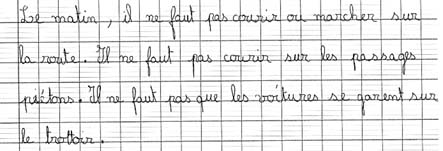 Le matin, il ne faut pas courir ou marcher sur
la route. Il ne faut pas courir sur les passages
piétons. Il ne faut pas que les voitures se garent sur
le trottoir.